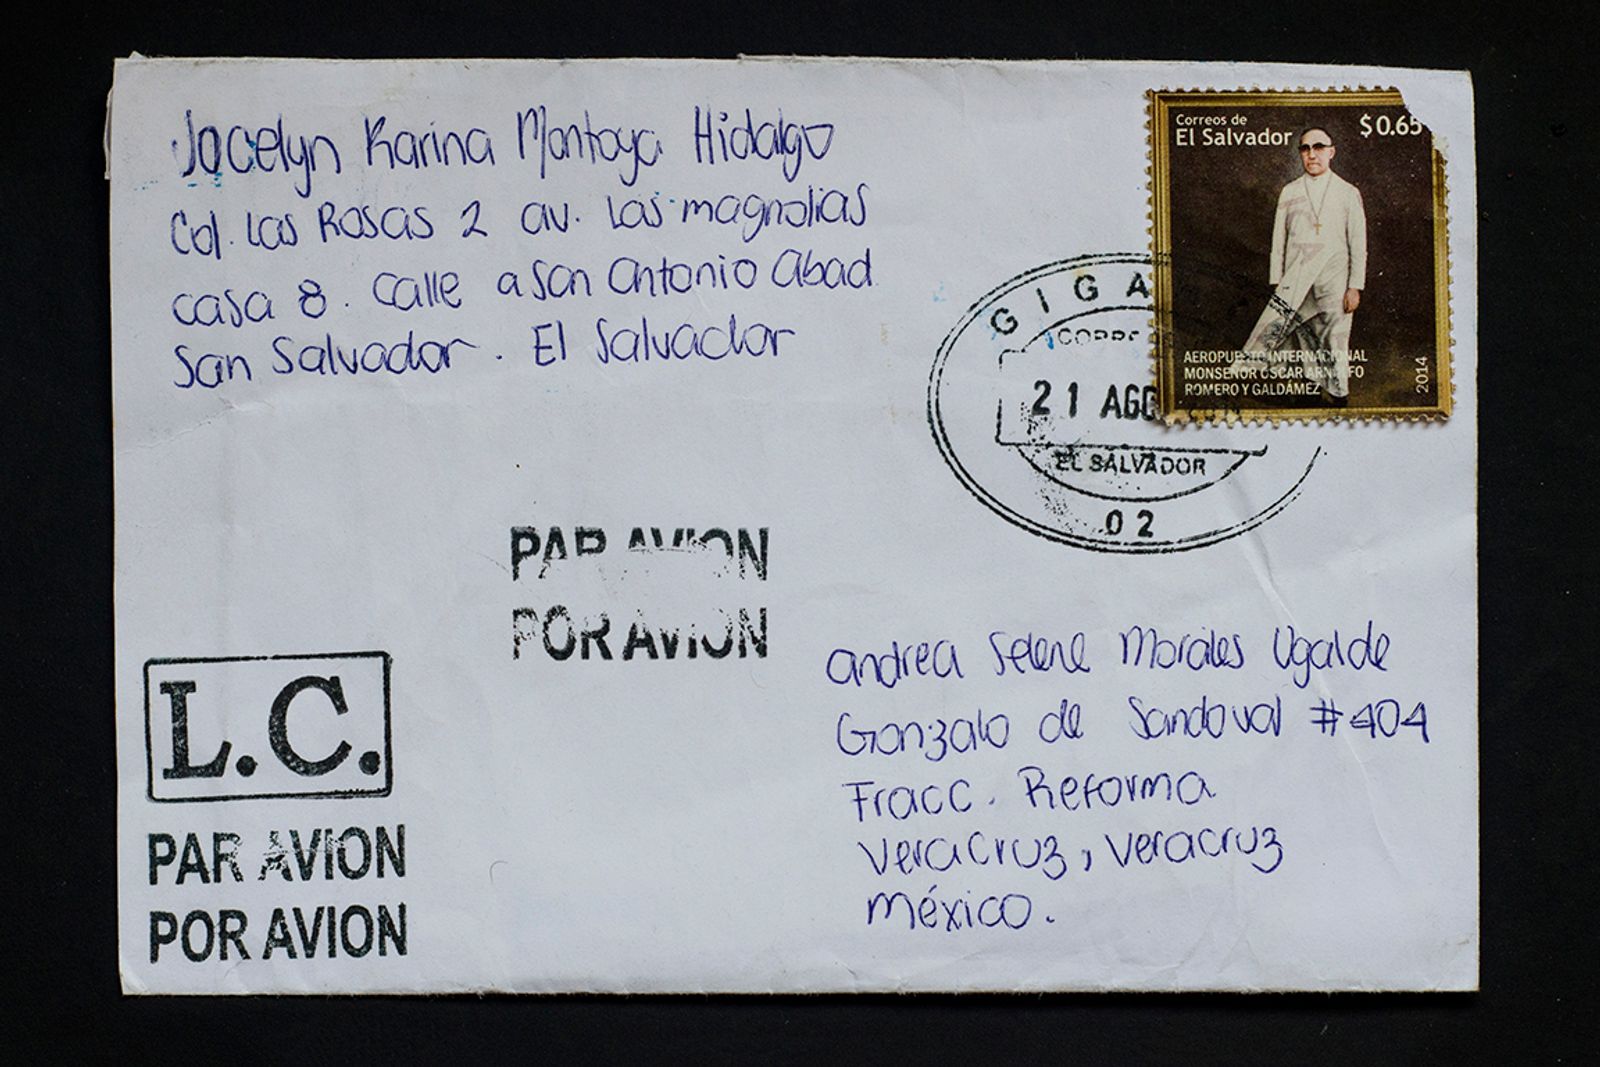 Jocelyn Karina Montoya Hidalgo
Col. Las Rosas 2 av. Las magnolias
casa 8. Calle a San Antonio Abad
San Salvador. El Salvador
Correos de
El Salvador
$0.65
AEROPUERTO INTERNACIONAL
MONSEÑOR OSCAR ARNULFO
ROMERO Y GALDÁMEZ
2014
21 AGO
EL SALVADOR
02
PAR AVION
POR AVION
andrea Selene Morales Ugalde
Gonzalo de Sandoval #404
Fracc. Reforma
Veracruz, Veracruz
México.
L.C.
PAR AVION
POR AVION